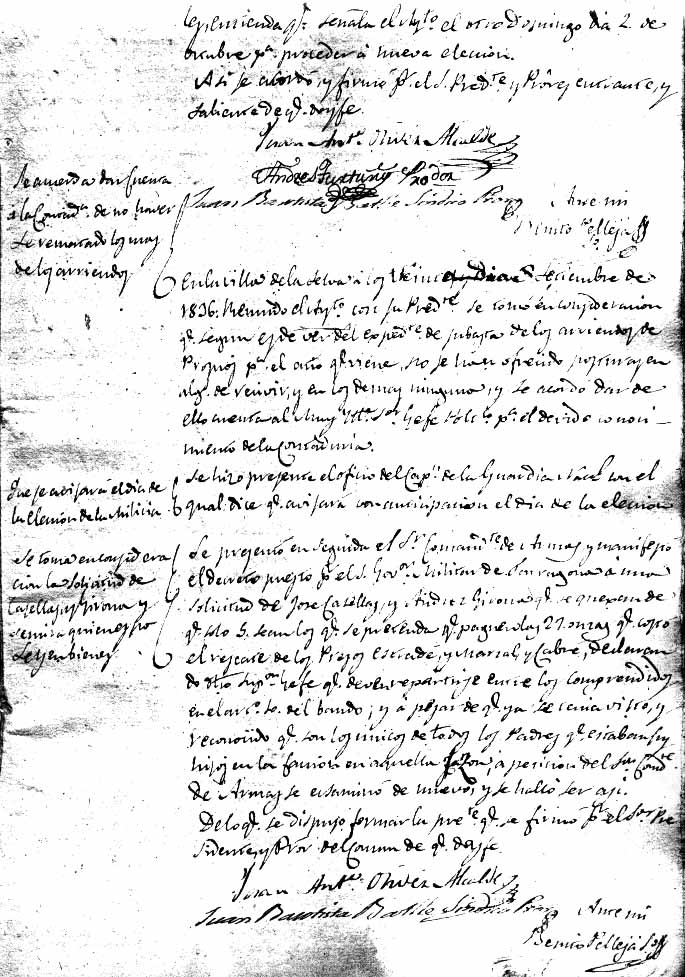 ley, enmienda qe. señala el Aytº. el otro Domingo dia 2. de
octubre pª. proceder á nueva eleccion.
Asi se acordó, y firmó pr. el S. Predte. y Pror. entrante, y
saliente de q. doy fe.
Juan Antº. Oliver Alcalde
Andres Fortuny Prodor
Juan Bautista Batlle Sindico Pror
Ante mi
Benito Pellejà
Se acuerda dar cuenta
á la Contadª. de no haver
se rematado los mas
de los arriendos
En la villa de la Selva á los veinte
Setiembre de
1836. Reunido el Aytº. con su Predte. se tomó en consideracion
q. segun es de ver del expedte. de subasta de los arriendos de
Propios pª. el año q. viene, no se han ofrecido posturas en
algs. de reivir, y en los demas ninguna, y se acordó dar de
ello cuenta al Muy Iltre. Sor. Gefe Polcº. pª. el devido conoci-
miento de la Contaduria.
Que se avisará el dia de
la Eleccion de la Milicia
Se hizo presente el oficio del Capn. de la Guardia Nacl. con el
qual dice q. avisará con anticipacion el dia de la eleccion
Se toma en considera
cion la solicitud de
Casellas, y Girona y
se mira quienes no
tienen bienes
Se presentó en seguida el Sr. Comandte. de Armas y manifestó
el decreto puesto pr. el S. Govor. Militar de Tarragona á una
solicitud de Jose Casellas, y Andres Girona q. se quexan de
q. solo 5. sean los q. se pretenda q. paguen las 27. onzas q. costó
el rescate de los Presos Estradé, y Marsal y Cabré, declaran
do dho. Supor. Gefe q. deven repartirse entre los comprendidos
en el artº. 5º. del bando; y á pesar de q. ya se tenia visto, y
reconocido q. son los unicos de todos los Padres q. estaban sus
hijos en la faccion en aquella sazon, á peticion del Sor. Comdte.
de Armas se ensaminó de nuevo, y se halló ser asi.
De lo q. se dispuso formar la prete. q. se firmó pr. el Sor. Pre
sidente, y Pror. del Comun de q. doy fe
Juan Antº. Oliver Alcalde
Juan Bautista Batlle Sindico Pror
Ante mi
Benito Pellejà